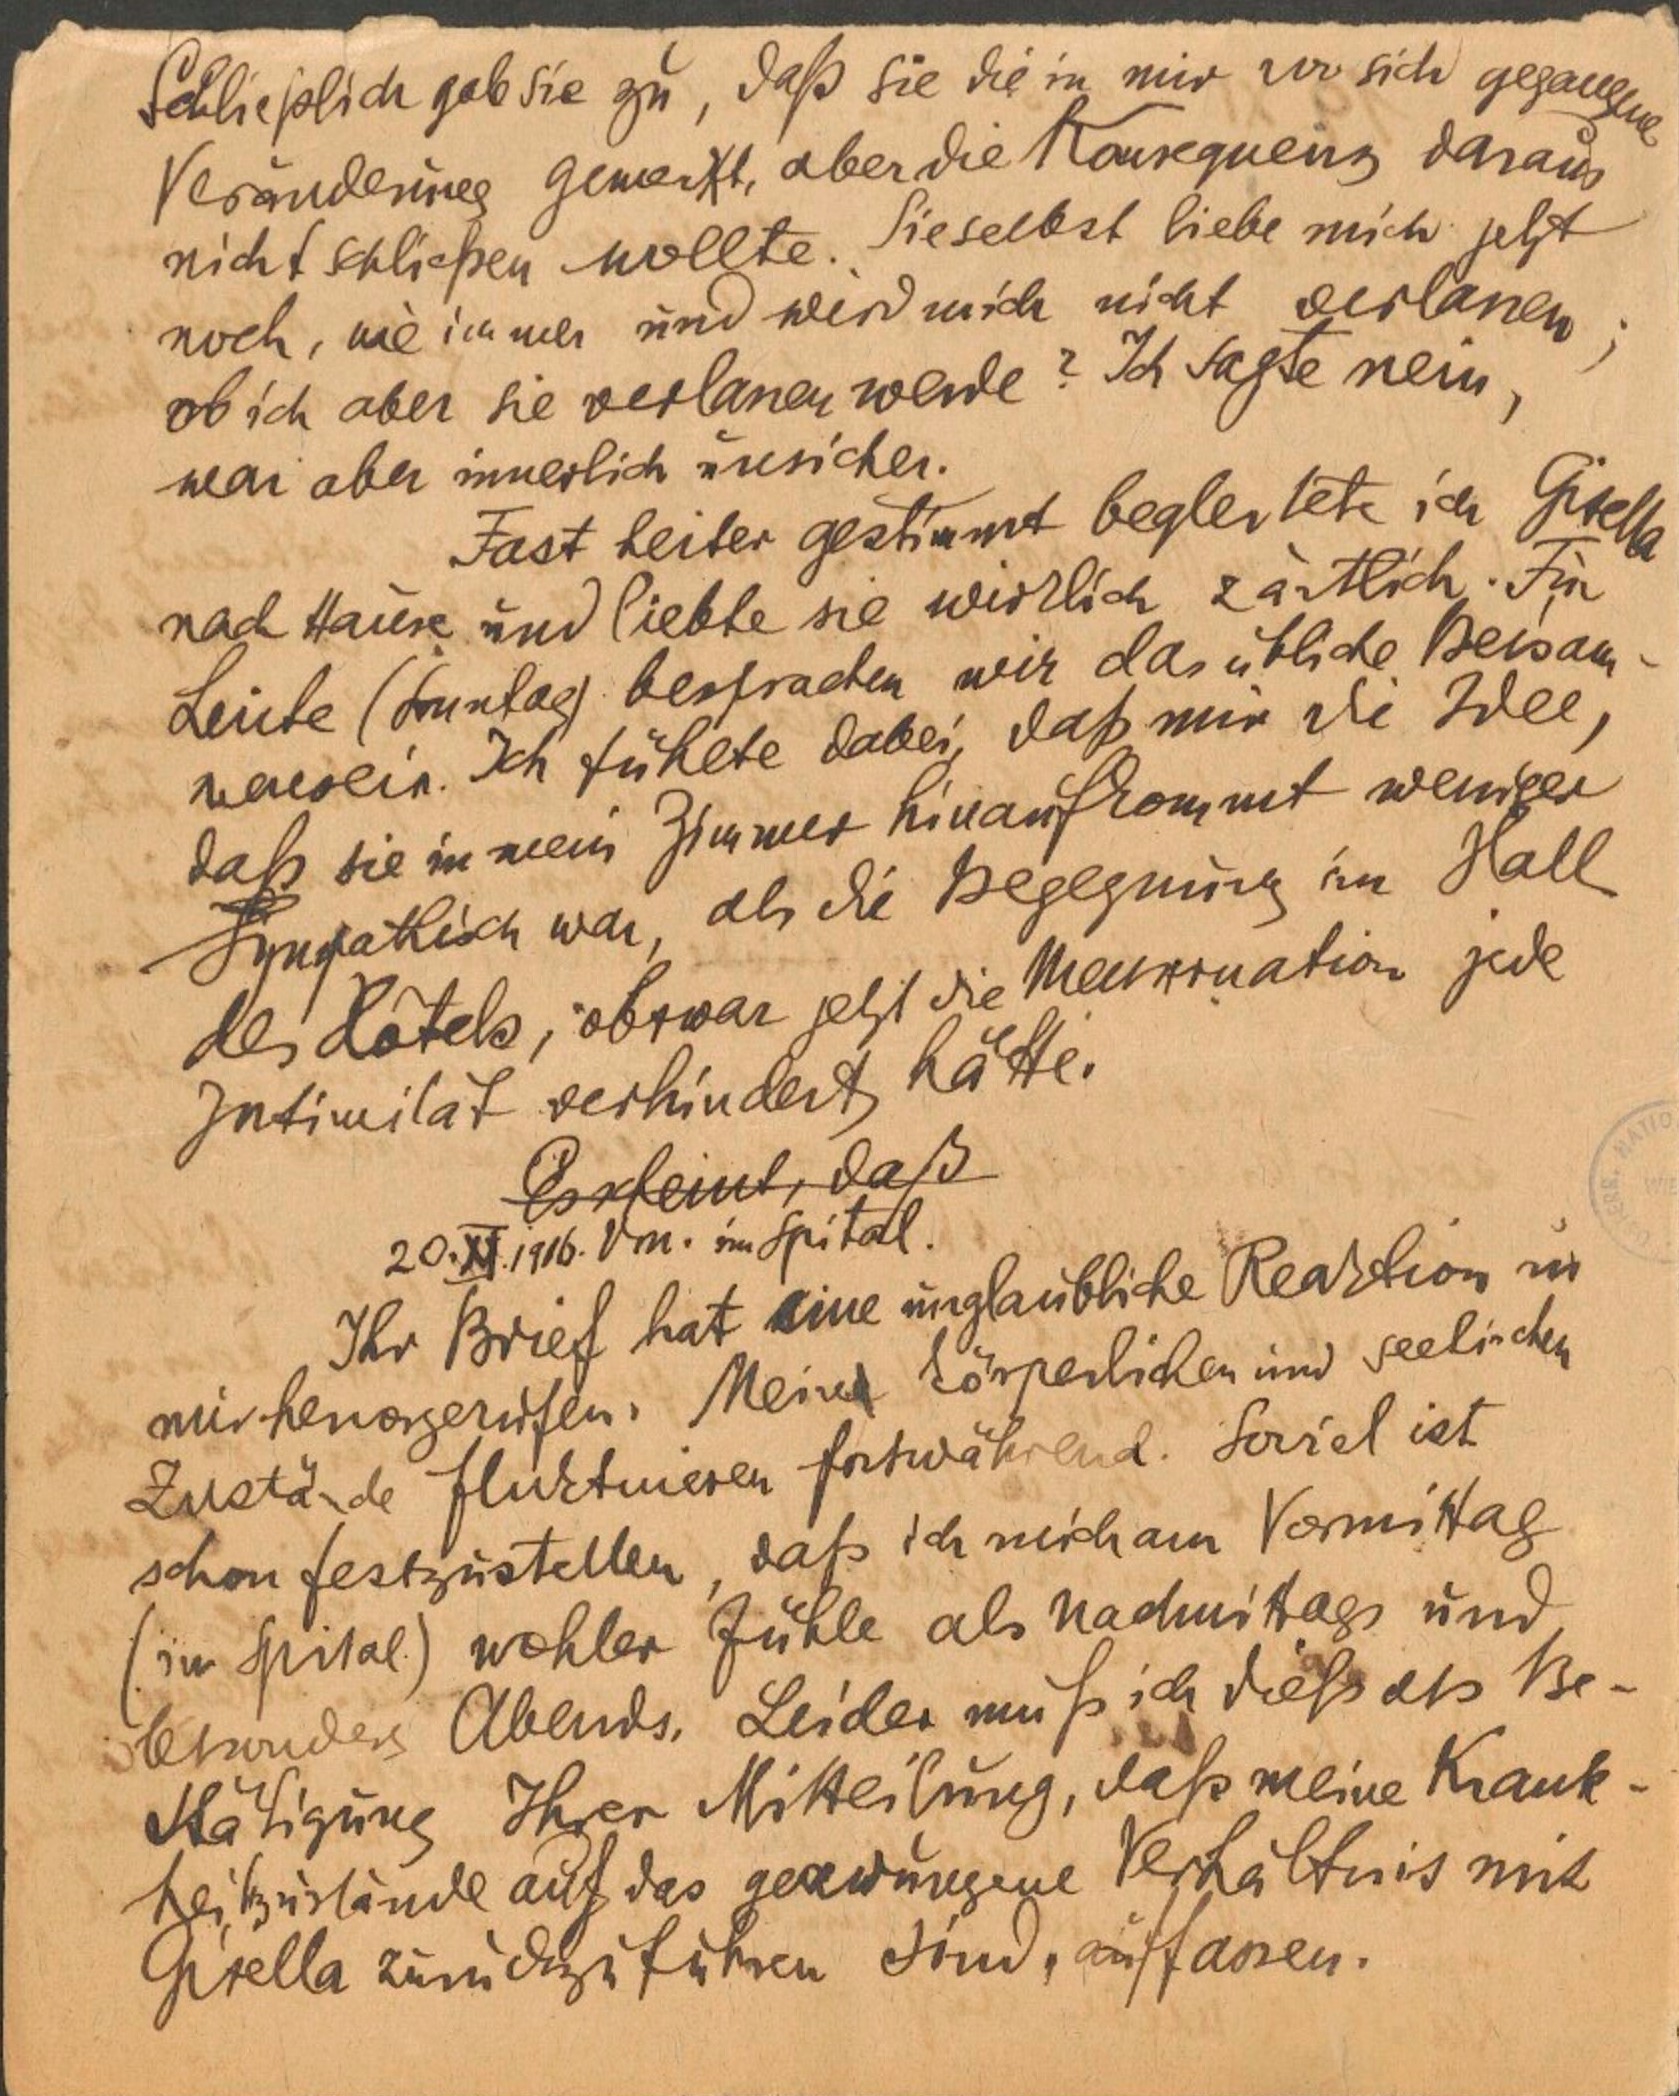 Schließlich gab sie zu, daß sie die in mir vor sich gegangene
Veränderung gemerkt, aber die Konsequenz daraus
nicht schließen wollte. Sie selbst liebe mich jetzt
noch, wie immer und wird mich nicht verlassen;
ob ich aber sie verlassen werde? Ich sagte nein,
war aber innerlich unsicher.
Fast heiter gestimmt begleitete ich Gisella
nach Hause und liebte sie wirklich zärtlich. Für
heute (Sonntag) besprachen wir das übliche Beisam-
mensein. Ich fühlte dabei, daß mir die Idee,
daß sie in mein Zimmer hinaufkommt weniger
sympathisch war, als die Begegnung im Hall
des Hôtels, obzwar jetzt die Menstruation jede
Intimität verhindert hätte.
Es scheint, daß
20.XI.1916. Vm. im Spital.
Ihr Brief hat eine unglaubliche Reaktion in
mir hervorgerufen. Meine körperlichen und seelischen
Zustände fluktuieren fortwährend. Soviel ist
schon festzustellen, daß ich mich am Vormittag
(im Spital) wohler fühle als nachmittags und
besonders Abends. Leider muß ich dieß als Be-
stätigung Ihrer Mitteilung, daß meine Krank-
heitszustände auf das gezwungene Verhältnis mit
Gisella zurückzuführen sind, auffassen.